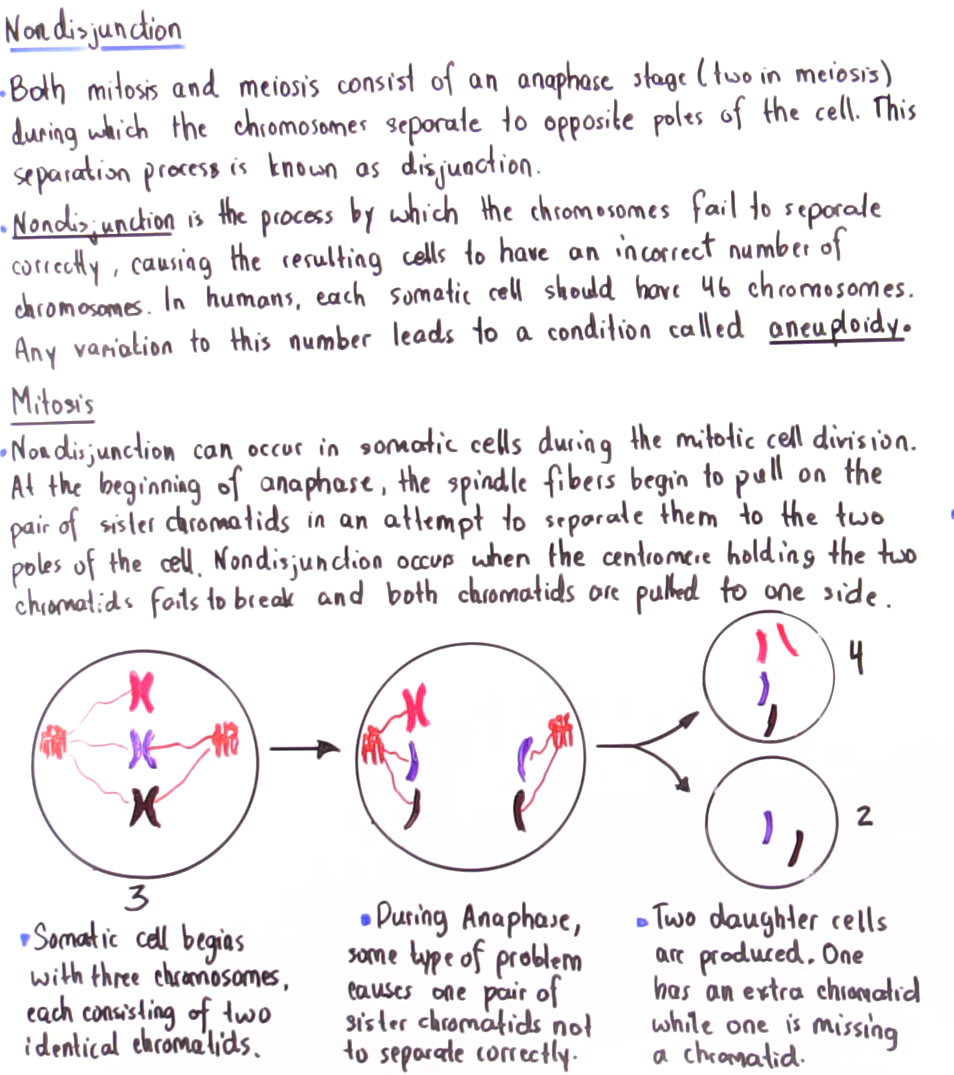 Nondisjunction
• Both mitosis and meiosis consist of an anaphase stage (two in meiosis)
during which the chromosomes seporate to opposite poles of the cell. This
separation process is known as disjunction.
• Nondisjunction is the process by which the chromosomes fail to seporate
correctly, causing the resulting cells to have an incorrect number of
chromosomes. In humans, each somatic cell should have 46 chromosomes.
Any variation to this number leads to a condition called aneuploidy.
Mitosis
• Nondisjunction can occur in somatic cells during the mitotic cell division.
At the beginning of anaphase, the spindle fibers begin to pull on the
pair of sister chromatids in an attempt to seporate them to the two
poles of the cell. Nondisjunction occurs when the centromere holding the two
chromatids fails to break and both chromatids are pulled to one side.
4
2
3
• Somatic cell begins
with three chromosomes,
each consisting of two
identical chromatids.
• During Anaphase,
some type of problem
causes one pair of
sister chromatids not
to separate correctly.
• Two daughter cells
are produced. One
has an extra chromatid
while one is missing
a chromatid.